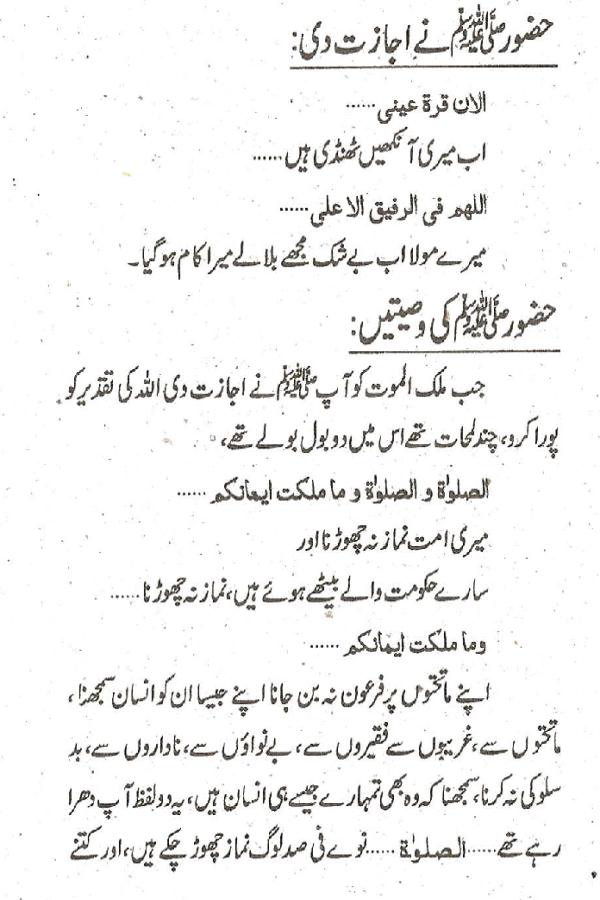 حضور ﷺ نے اجازت دی:
الان قرة عینی......
اب میری آنکھیں ٹھنڈی ہیں......
اللھم فی الرفیق الاعلی......
میرے مولا اب بے شک مجھے بلا لے میرا کام ہو گیا۔
حضور ﷺ کی وصیتیں:
جب ملک الموت کو آپ ﷺ نے اجازت دی اللہ کی تقدیر کو
پورا کرو، چند لمحات تھے اس میں دو بول بولے تھے،
الصلوٰة و الصلوٰة و ما ملکت ایمانکم......
میری امت نماز نہ چھوڑنا اور
سارے حکومت والے بیٹھے ہوئے ہیں، نماز نہ چھوڑنا......
وما ملکت ایمانکم......
اپنے ماتحتوں پر فرعون نہ بن جانا اپنے جیسا ان کو انسان سمجھنا،
ماتحتوں سے، غریبوں سے فقیروں سے، بے نواؤں سے، ناداروں سے، بد
سلوکی نہ کرنا، سمجھنا کہ وہ بھی تمہارے جیسے ہی انسان ہیں، یہ دو لفظ آپ دھرا
رہے تھے......الصلوٰة......نوے فی صد لوگ نماز چھوڑ چکے ہیں، اور کتنے